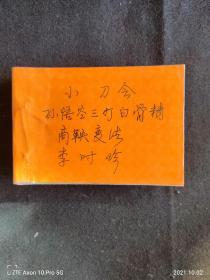 小刀会
孙悟空三打白骨精
商鞅变法
李时珍
ZTE Axon 10 Pro 5G
2021.10.02